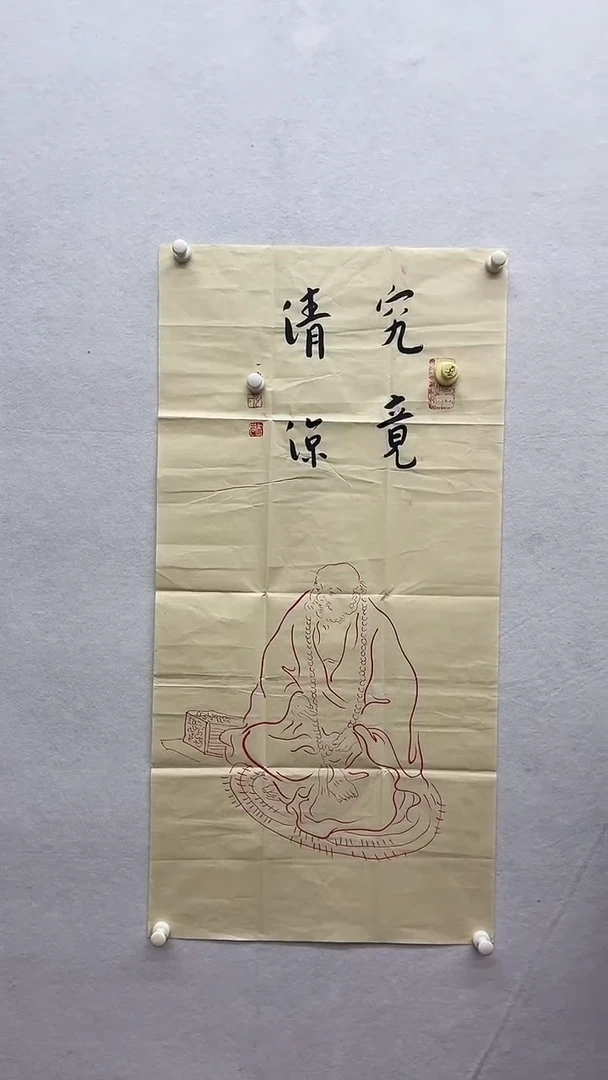 究竟
清凉